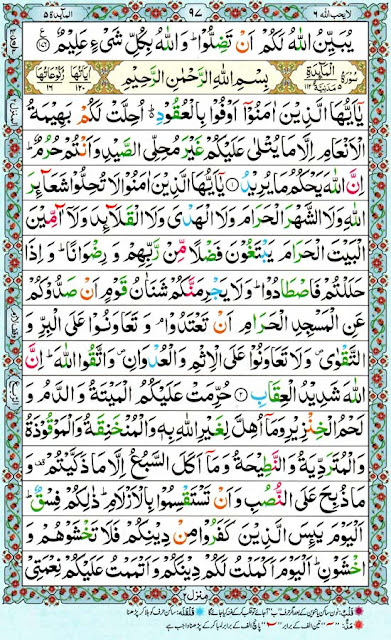 لا يحب الله ٦ ٩٧ المآئدة ٥
يُبَيِّنُ اللّٰهُ لَكُمْ اَنْ تَضِلُّوْا ؕ وَاللّٰهُ بِكُلِّ شَیْءٍ عَلِیْمٌ ﴿۱۷۶﴾
سُوْرَةُ الْمَآئِدَةِ ٥ مَدَنِيَّةٌ ١١٢ بِسْمِ اللّٰهِ الرَّحْمٰنِ الرَّحِیْمِ اٰيَاتُهَا ١٢٠ رُكُوْعَاتُهَا ١٦
یٰۤاَیُّهَا الَّذِیْنَ اٰمَنُوْۤا اَوْفُوْا بِالْعُقُوْدِ ؕ اُحِلَّتْ لَكُمْ بَهِیْمَةُ
الْاَنْعَامِ اِلَّا مَا یُتْلٰی عَلَیْكُمْ غَیْرَ مُحِلِّی الصَّیْدِ وَاَنْتُمْ حُرُمٌ ؕ
اِنَّ اللّٰهَ یَحْكُمُ مَا یُرِیْدُ ﴿۱﴾ یٰۤاَیُّهَا الَّذِیْنَ اٰمَنُوْا لَا تُحِلُّوْا شَعَآئِرَ
اللّٰهِ وَلَا الشَّهْرَ الْحَرَامَ وَلَا الْهَدْیَ وَلَا الْقَلَآئِدَ وَلَاۤ آٰمِّیْنَ
الْبَیْتَ الْحَرَامَ یَبْتَغُوْنَ فَضْلًا مِّنْ رَّبِّهِمْ وَ رِضْوَانًا ؕ وَ اِذَا
حَلَلْتُمْ فَاصْطَادُوْا ؕ وَلَا یَجْرِمَنَّكُمْ شَنَاٰنُ قَوْمٍ اَنْ صَدُّوْكُمْ
عَنِ الْمَسْجِدِ الْحَرَامِ اَنْ تَعْتَدُوْا ۘ وَ تَعَاوَنُوْا عَلَی الْبِرِّ وَ
التَّقْوٰی ۪ وَلَا تَعَاوَنُوْا عَلَی الْاِثْمِ وَ الْعُدْوَانِ ۪ وَاتَّقُوا اللّٰهَ ؕ اِنَّ
اللّٰهَ شَدِیْدُ الْعِقَابِ ﴿۲﴾ حُرِّمَتْ عَلَیْكُمُ الْمَیْتَةُ وَ الدَّمُ وَ
لَحْمُ الْخِنْزِیْرِ وَمَاۤ اُهِلَّ لِغَیْرِ اللّٰهِ بِهٖ وَالْمُنْخَنِقَةُ وَالْمَوْقُوْذَةُ
وَ الْمُتَرَدِّیَةُ وَ النَّطِیْحَةُ وَ مَاۤ اَكَلَ السَّبُعُ اِلَّا مَا ذَكَّیْتُمْ ۟ وَ
مَا ذُبِحَ عَلَی النُّصُبِ وَ اَنْ تَسْتَقْسِمُوْا بِالْاَزْلَامِ ؕ ذٰلِكُمْ فِسْقٌ ؕ
اَلْیَوْمَ یَئِسَ الَّذِیْنَ كَفَرُوْا مِنْ دِیْنِكُمْ فَلَا تَخْشَوْهُمْ وَ
اخْشَوْنِ ؕ اَلْیَوْمَ اَكْمَلْتُ لَكُمْ دِیْنَكُمْ وَ اَتْمَمْتُ عَلَیْكُمْ نِعْمَتِیْ
منزل ٢